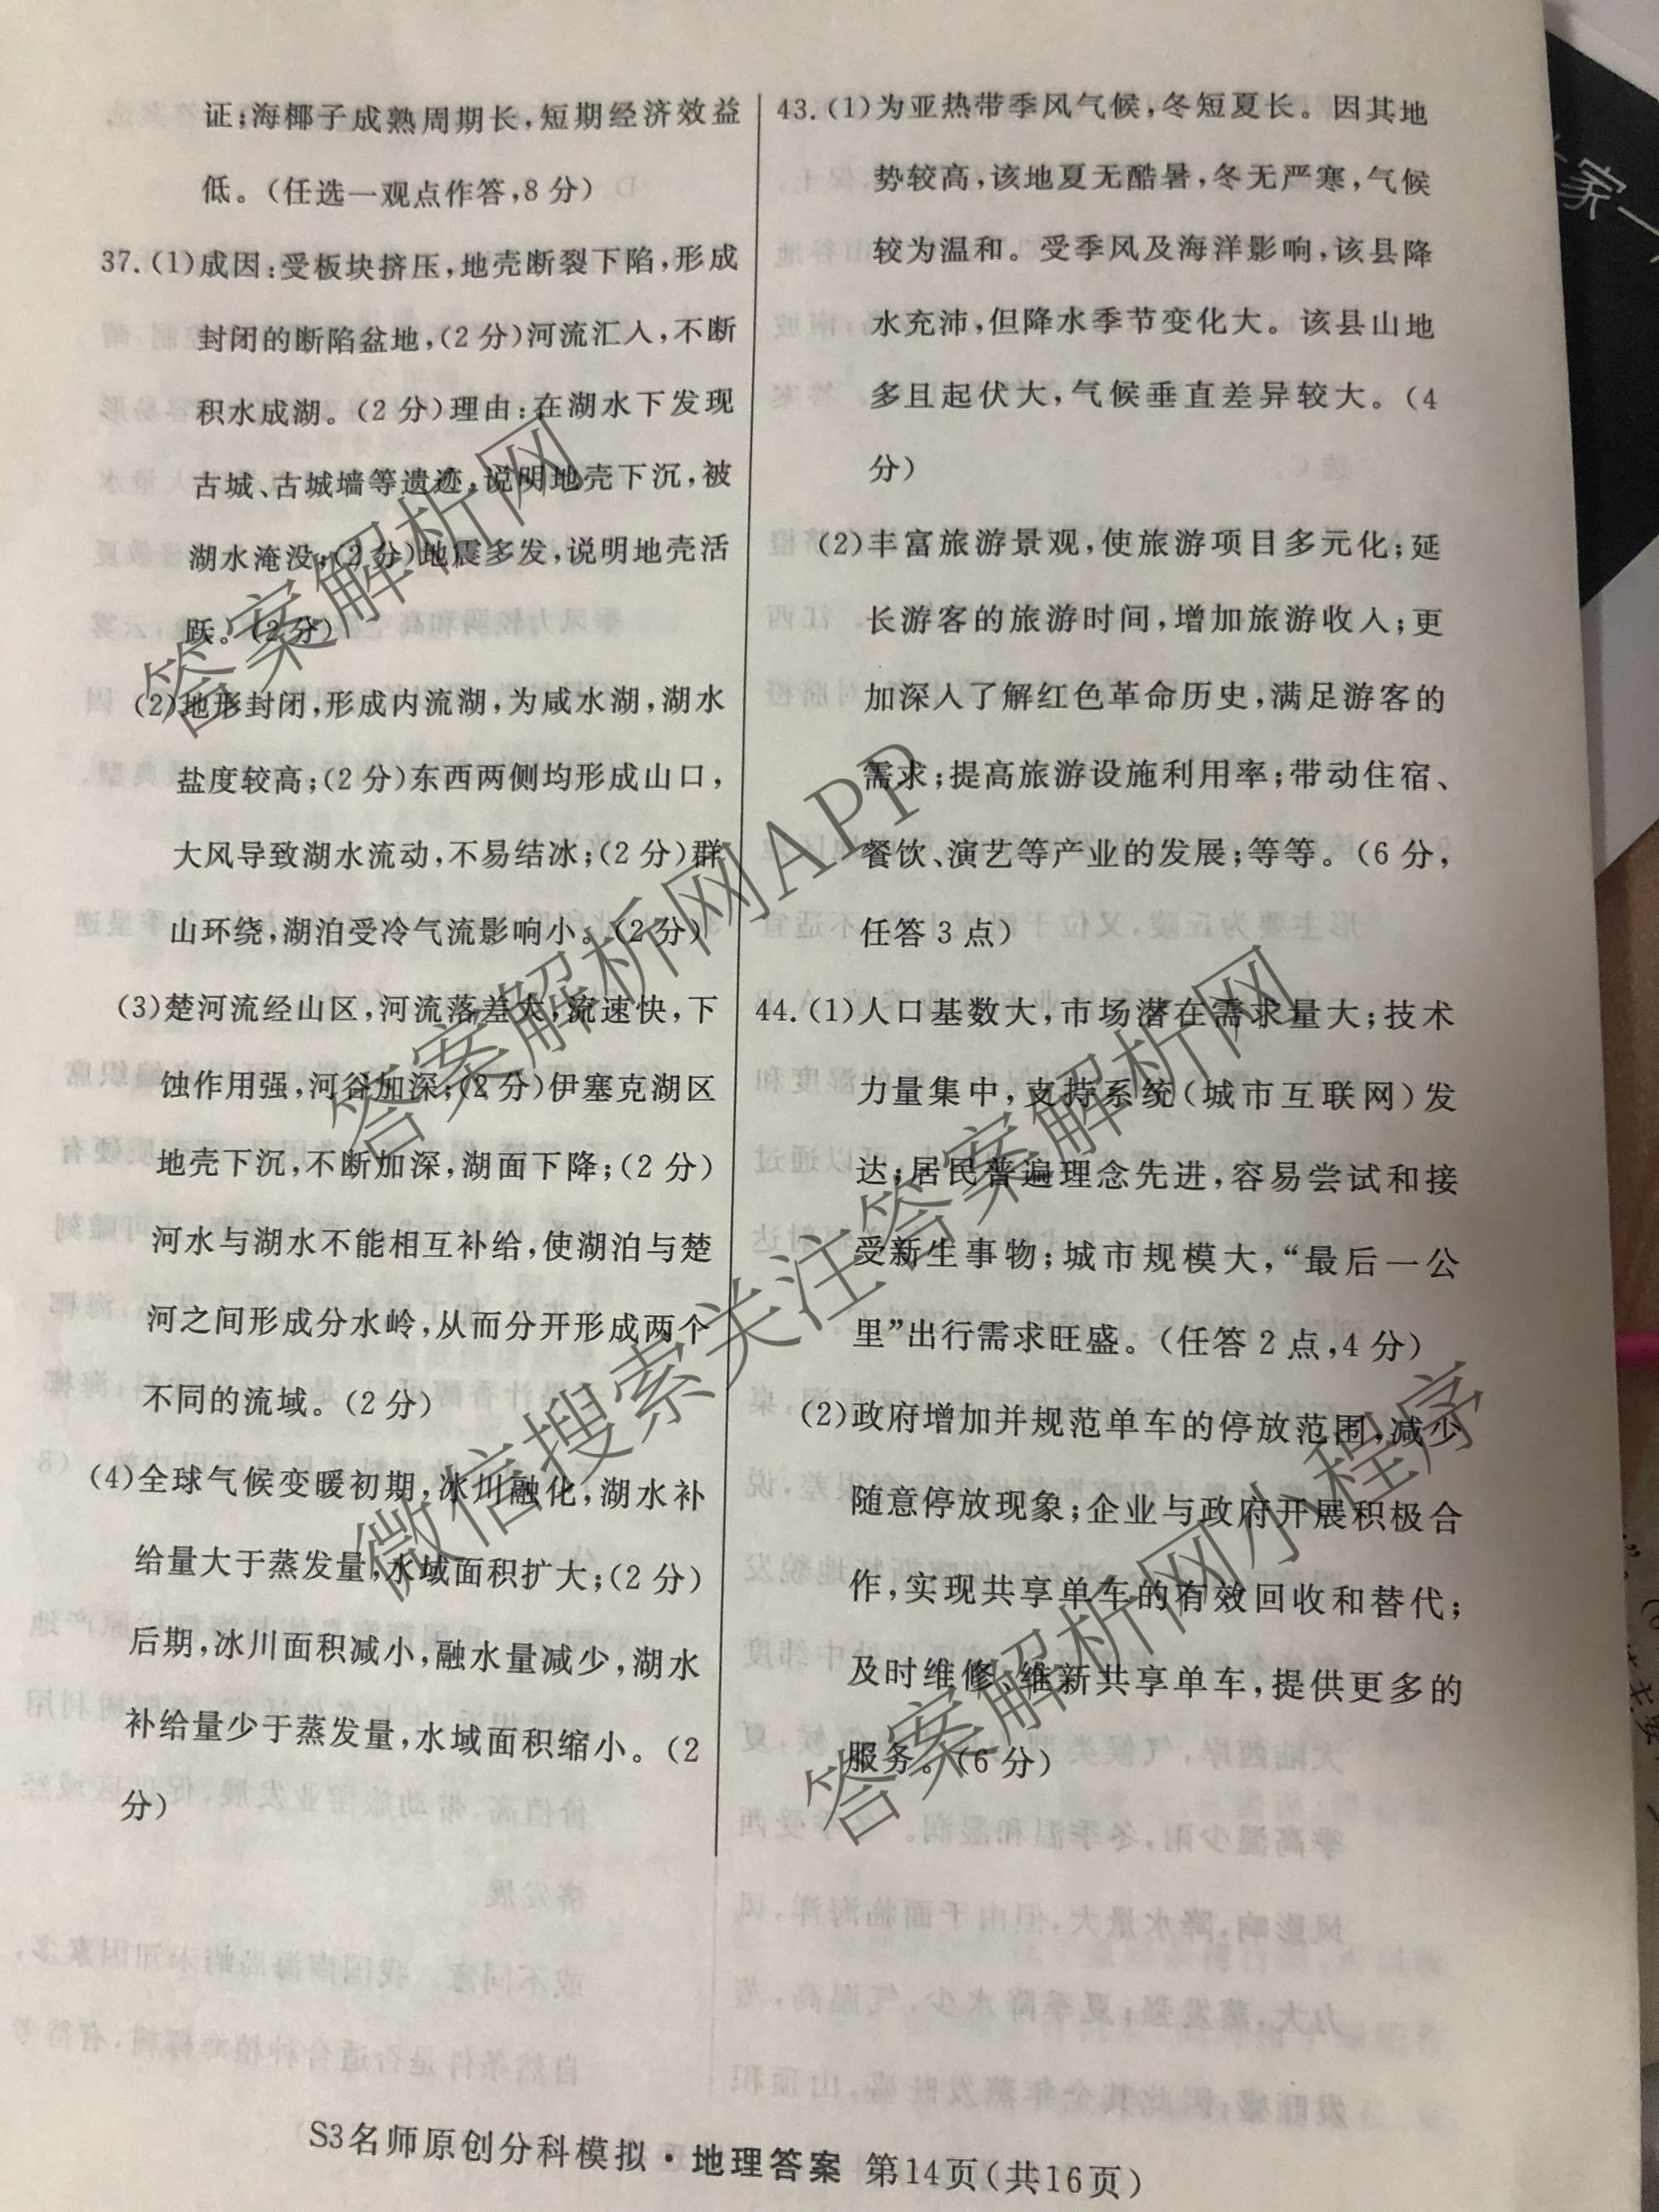 证;海椰子成熟周期长,短期经济效益
低。(任选一观点作答,8分)
37.(1)成因:受板块挤压,地壳断裂下陷,形成
封闭的断陷盆地,(2分)河流汇入,不断
积水成湖。(2分)理由:在湖水下发现
古城、古城墙等遗迹,说明地壳下沉,被
湖水淹没;(2分)地震多发,说明地壳活
跃。(2分)
(2)地形封闭,形成内流湖,为咸水湖,湖水
盐度较高;(2分)东西两侧均形成山口,
大风导致湖水流动,不易结冰;(2分)群
山环绕,湖泊受冷气流影响小。(2分)
(3)楚河流经山区,河流落差大,流速快,下
蚀作用强,河谷加深;(2分)伊塞克湖区
地壳下沉,不断加深,湖面下降;(2分)
河水与湖水不能相互补给,使湖泊与楚
河之间形成分水岭,从而分开形成两个
不同的流域。(2分)
(4)全球气候变暖初期,冰川融化,湖水补
给量大于蒸发量,水域面积扩大;(2分)
后期,冰川面积减小,融水量减少,湖水
补给量少于蒸发量,水域面积缩小。(2
分)
43.(1)为亚热带季风气候,冬短夏长。因其地
势较高,该地夏无酷暑,冬无严寒,气候
较为温和。受季风及海洋影响,该县降
水充沛,但降水季节变化大。该县山地
多且起伏大,气候垂直差异较大。(4
分)
(2)丰富旅游景观,使旅游项目多元化;延
长游客的旅游时间,增加旅游收入;更
加深入了解红色革命历史,满足游客的
需求;提高旅游设施利用率;带动住宿、
餐饮、演艺等产业的发展;等等。(6分,
任答3点)
44.(1)人口基数大,市场潜在需求量大;技术
力量集中,支持系统(城市互联网)发
达;居民普遍理念先进,容易尝试和接
受新生事物;城市规模大,“最后一公
里”出行需求旺盛。(任答2点,4分)
(2)政府增加并规范单车的停放范围,减少
随意停放现象;企业与政府开展积极合
作,实现共享单车的有效回收和替代;
及时维修、维新共享单车,提供更多的
服务。(6分)
S3名师原创分科模拟·地理答案 第14页(共16页)
答案解析网
答案解析网APP
微信搜索关注答案解析网
答案解析网小程序